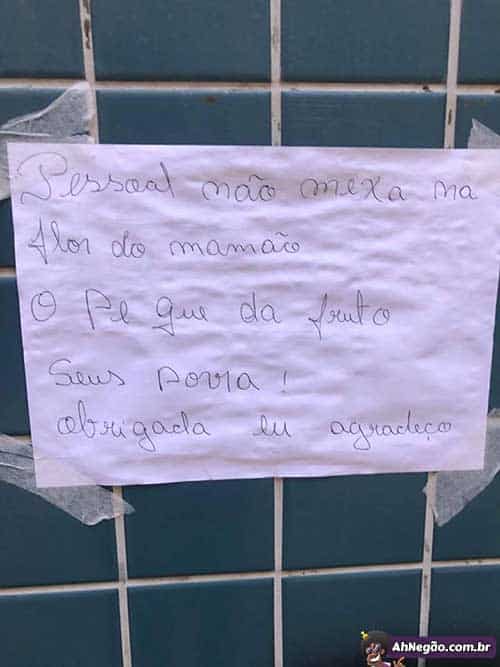 Pessoal não mexa na
flor do mamão
O Pe que da fruto
Seus porra!
obrigada eu agradeço
AhNegão.com.br